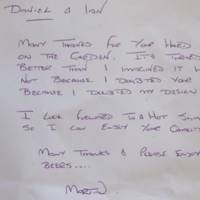 Daniel & Ian
Many Thanks For Your Hard
on the Garden. It's
Better Than I Imagined It
Not Because I Doubted Your
Because I Doubted my Design
I Look Forward To A Hot
So I Can Enjoy Your
Many Thanks & Please Enjoy
Beers....
Martin